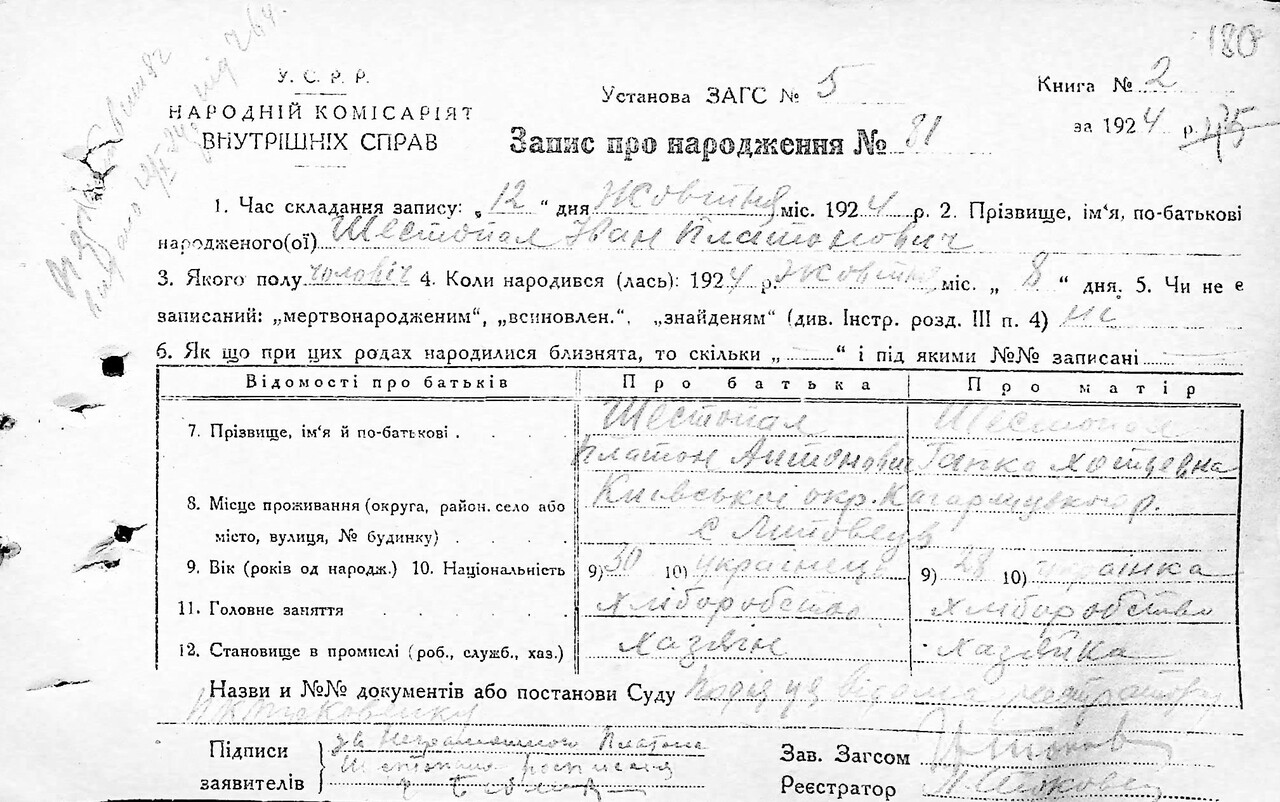 180
У. С. Р. Р.
НАРОДНІЙ КОМІСАРІЯТ
ВНУТРІШНІХ СПРАВ
Установа ЗАГС № 5
Книга № 2
за 1924 р. 175
Запис про народження № 81
1. Час складання запису: „12“ дня Жовтня міс. 1924 р. 2. Прізвище, ім‘я, по-батькові
народженого(ої) Шестопал Іван Платонович
3. Якого полу чоловіч 4. Коли народився (лась): 1924 р. Жовтня міс. „ 8 “ дня. 5. Чи не є
записаний: „мертвонародженим“, „всиновлен.“, „знайденям“ (див. Інстр. розд. III п. 4) ні
6. Як що при цих родах народилися близнята, то скільки „ — “ і під якими №№ записані —
Відомості про батьків Про батька Про матір
7. Прізвище, ім‘я й по-батькові . . . . Шестопал Шестопал
Платон Антонович Гапка
8. Місце проживання (округа, район. село або Київської окр. Кагарлицького р.
місто, вулиця, № будинку) . . . . с Липовець
9. Вік (років од народж.) 10. Національність 9) 30 10) українець 9) 28 10) українка
11. Головне заняття . . . . хліборобство хліборобство
12. Становище в промислі (роб., служб., хаз.) хазяїн хазяйка
Назви и №№ документів або постанови Суду Подія ця відома
Підписи за неграмотного Платона
заявителів Шестопала росписався
Зав. Загсом
Реєстратор